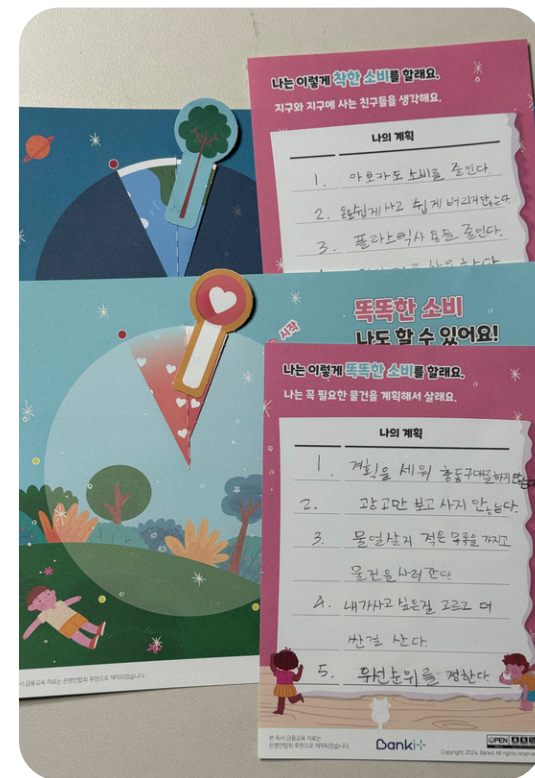 나는 이렇게 착한 소비를 할래요.
지구와 지구에 사는 친구들을 생각해요.
나의 계획
1. 아보카도 소비를 줄인다.
2. 옷을 쉽게 사고 쉽게 버리지 않는다.
3. 플라스틱 사용을 줄인다.
시작
똑똑한 소비
나도 할 수 있어요!
나는 이렇게 똑똑한 소비를 할래요.
나는 꼭 필요한 물건을 계획해서 살래요.
나의 계획
1. 계획을 세워 충동구매를하지
2. 광고만 보고 사지 안는다.
3. 물얼살지 적은 목록을 가지고
물건을 사러 간다.
4. 내가사고 싶은걸 고르고 더
싼걸 산다.
5. 우선순위를 정한다.
서 금융교육 자료는 은행연합회 후원으로 제작되었습니다.
본 독서 금융교육 자료는
은행연합회 후원으로 제작되었습니다.
Banki
OPEN
Copyright 2024. Banki All rights reserved